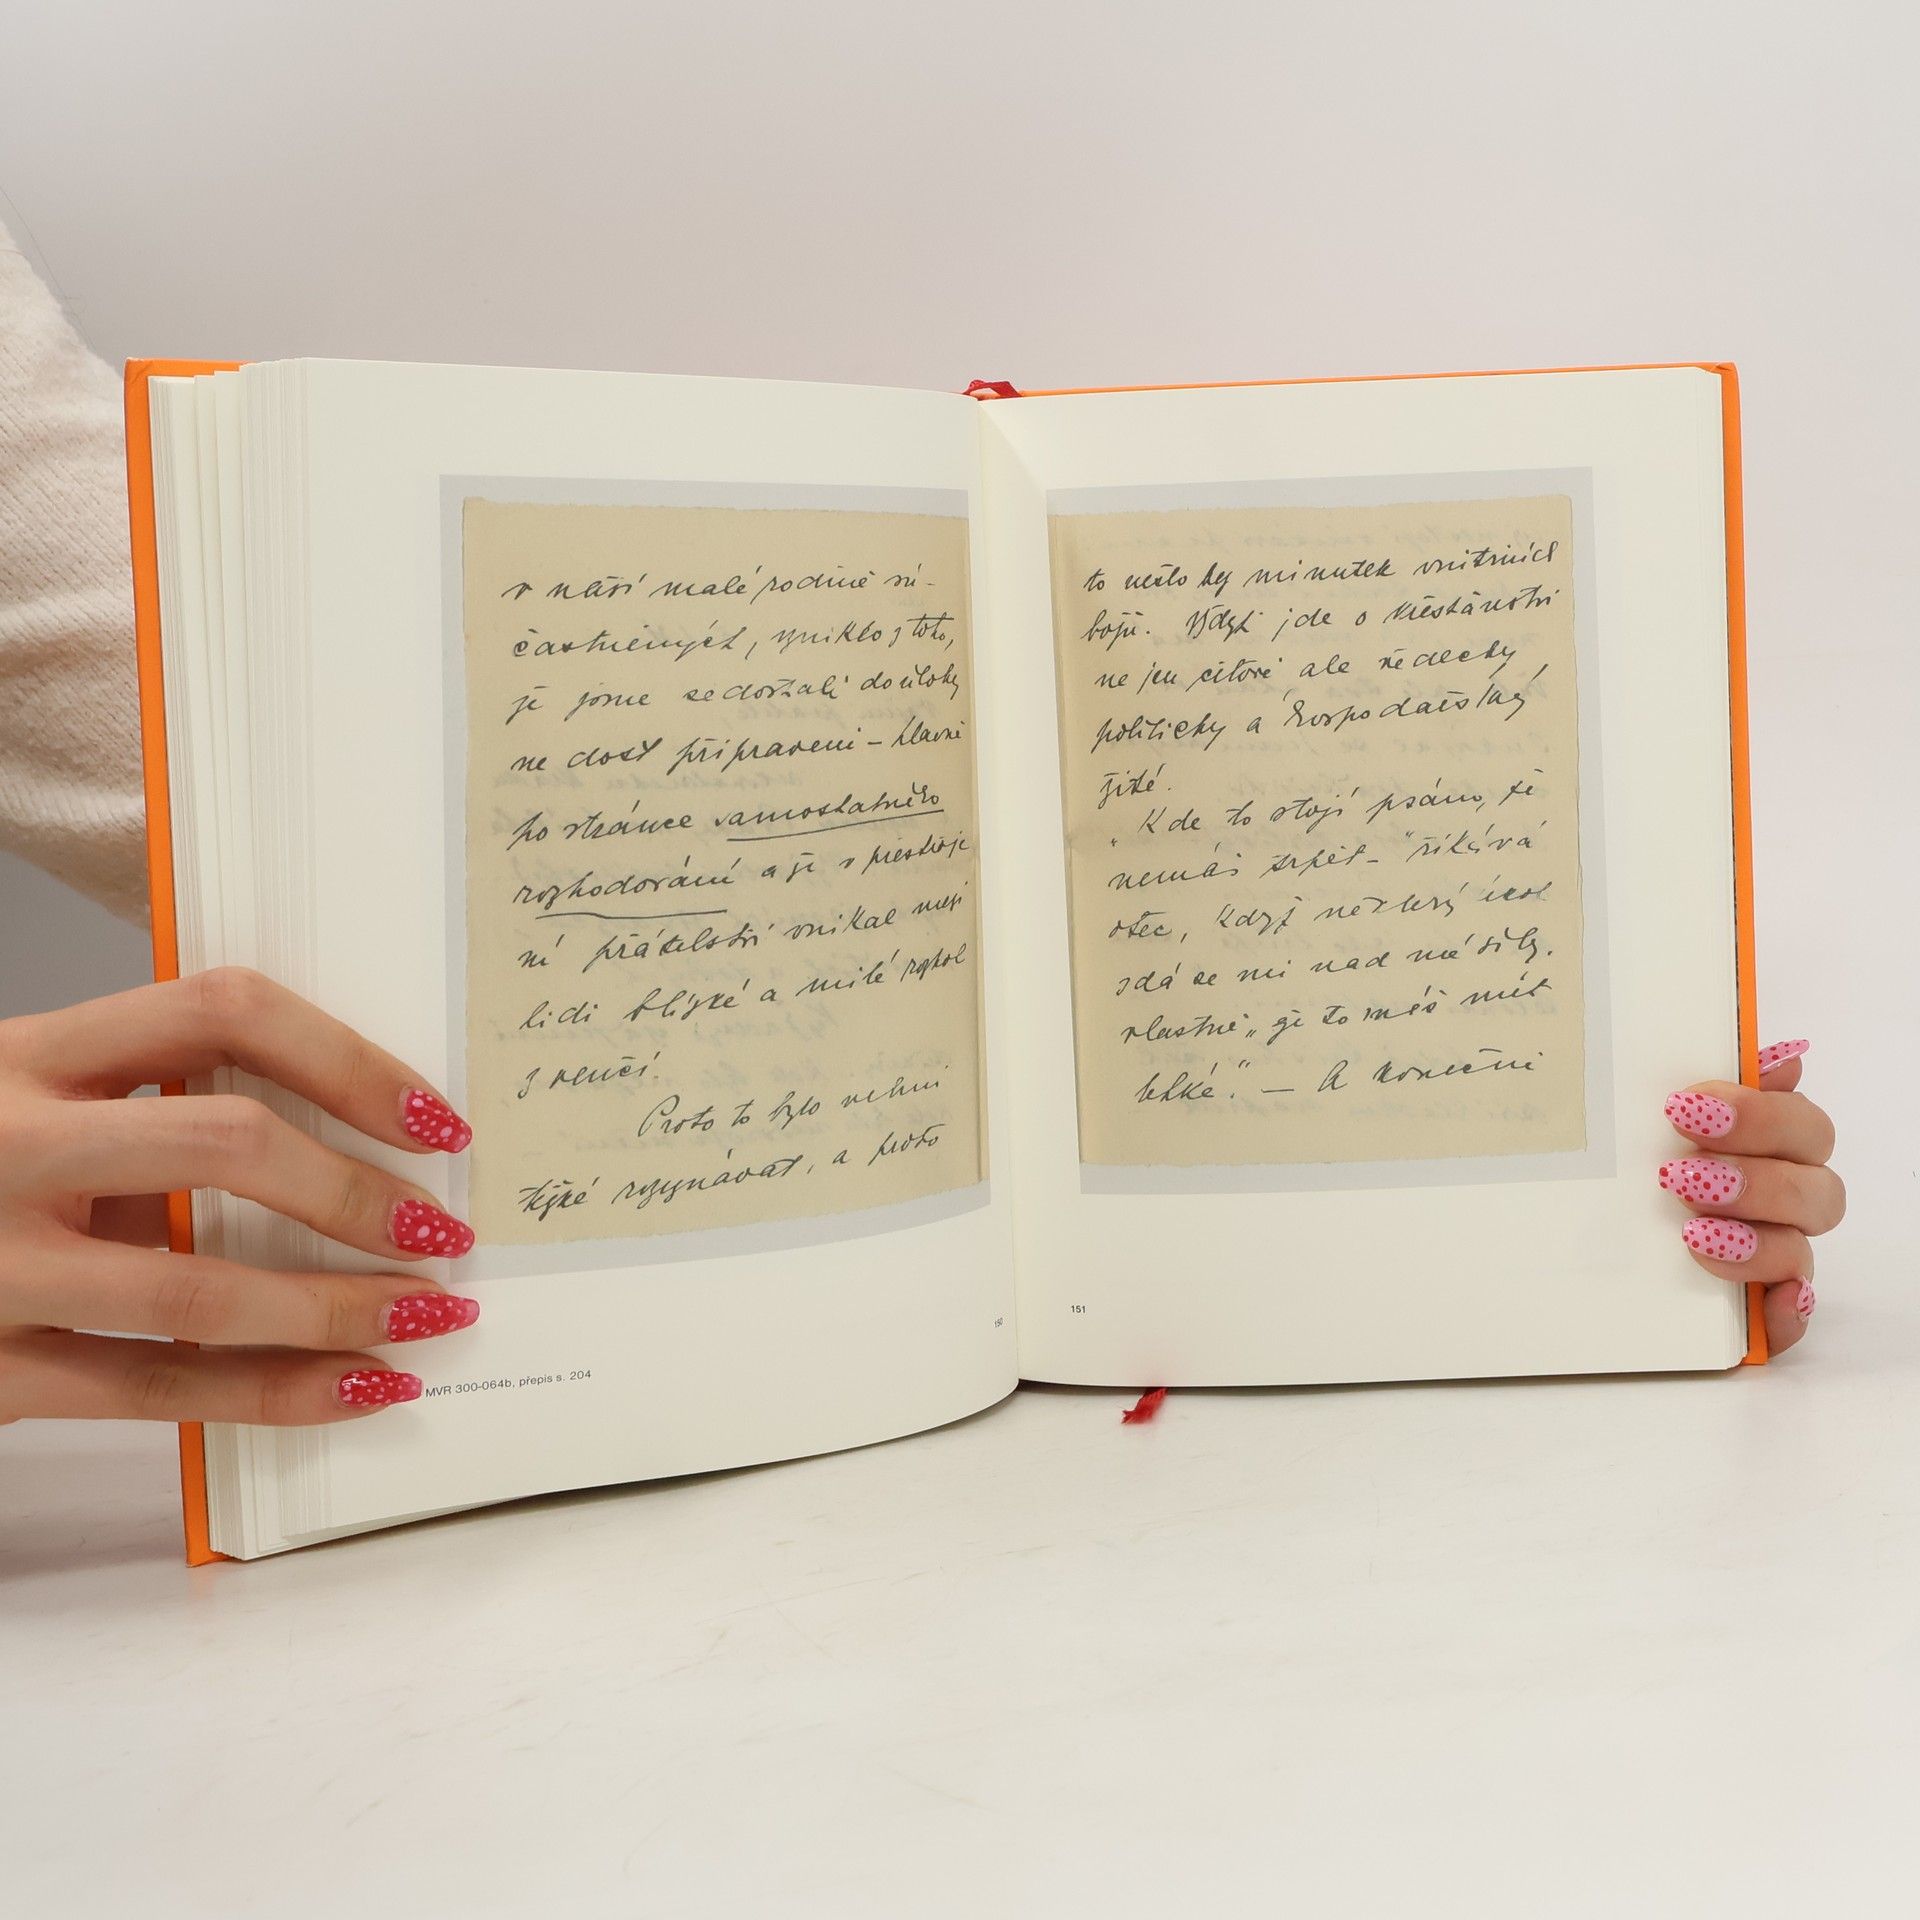 v naší malé rodině sú-
častněných, vyniklo z toho,
že jsme se dostali do úlohy
ne dosť připraveni – hlavně
po stránce samostatného
rozhodování a že v přestroje
ní přátelství vnikal mezi
lidi blízké a milé rozkol
z venčí.
Proto to bylo velmi
těžké rozeznávat, a proto
MVR 300-064b, přepis s. 204
150
to nešlo by minutek vnitřních
bojů. Vždyť jde o křesťanství
ne jen citově ale vědecky,
politicky a hospodářský
žité.
„Kde to stojí psáno, že
nemáš trpět –" říkává
otec, když některý úkol
zdá se mi nad mé síly.
vlastně „že to máš mít
lehké." – A konečně
151